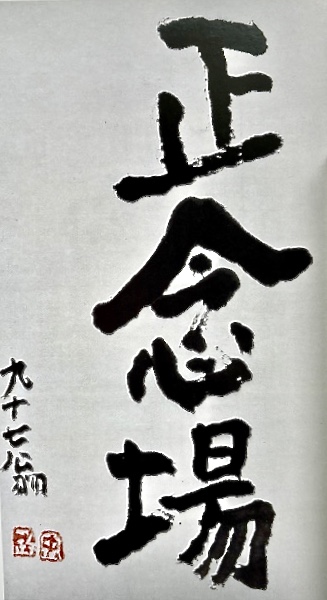 正念場
九十七八翁